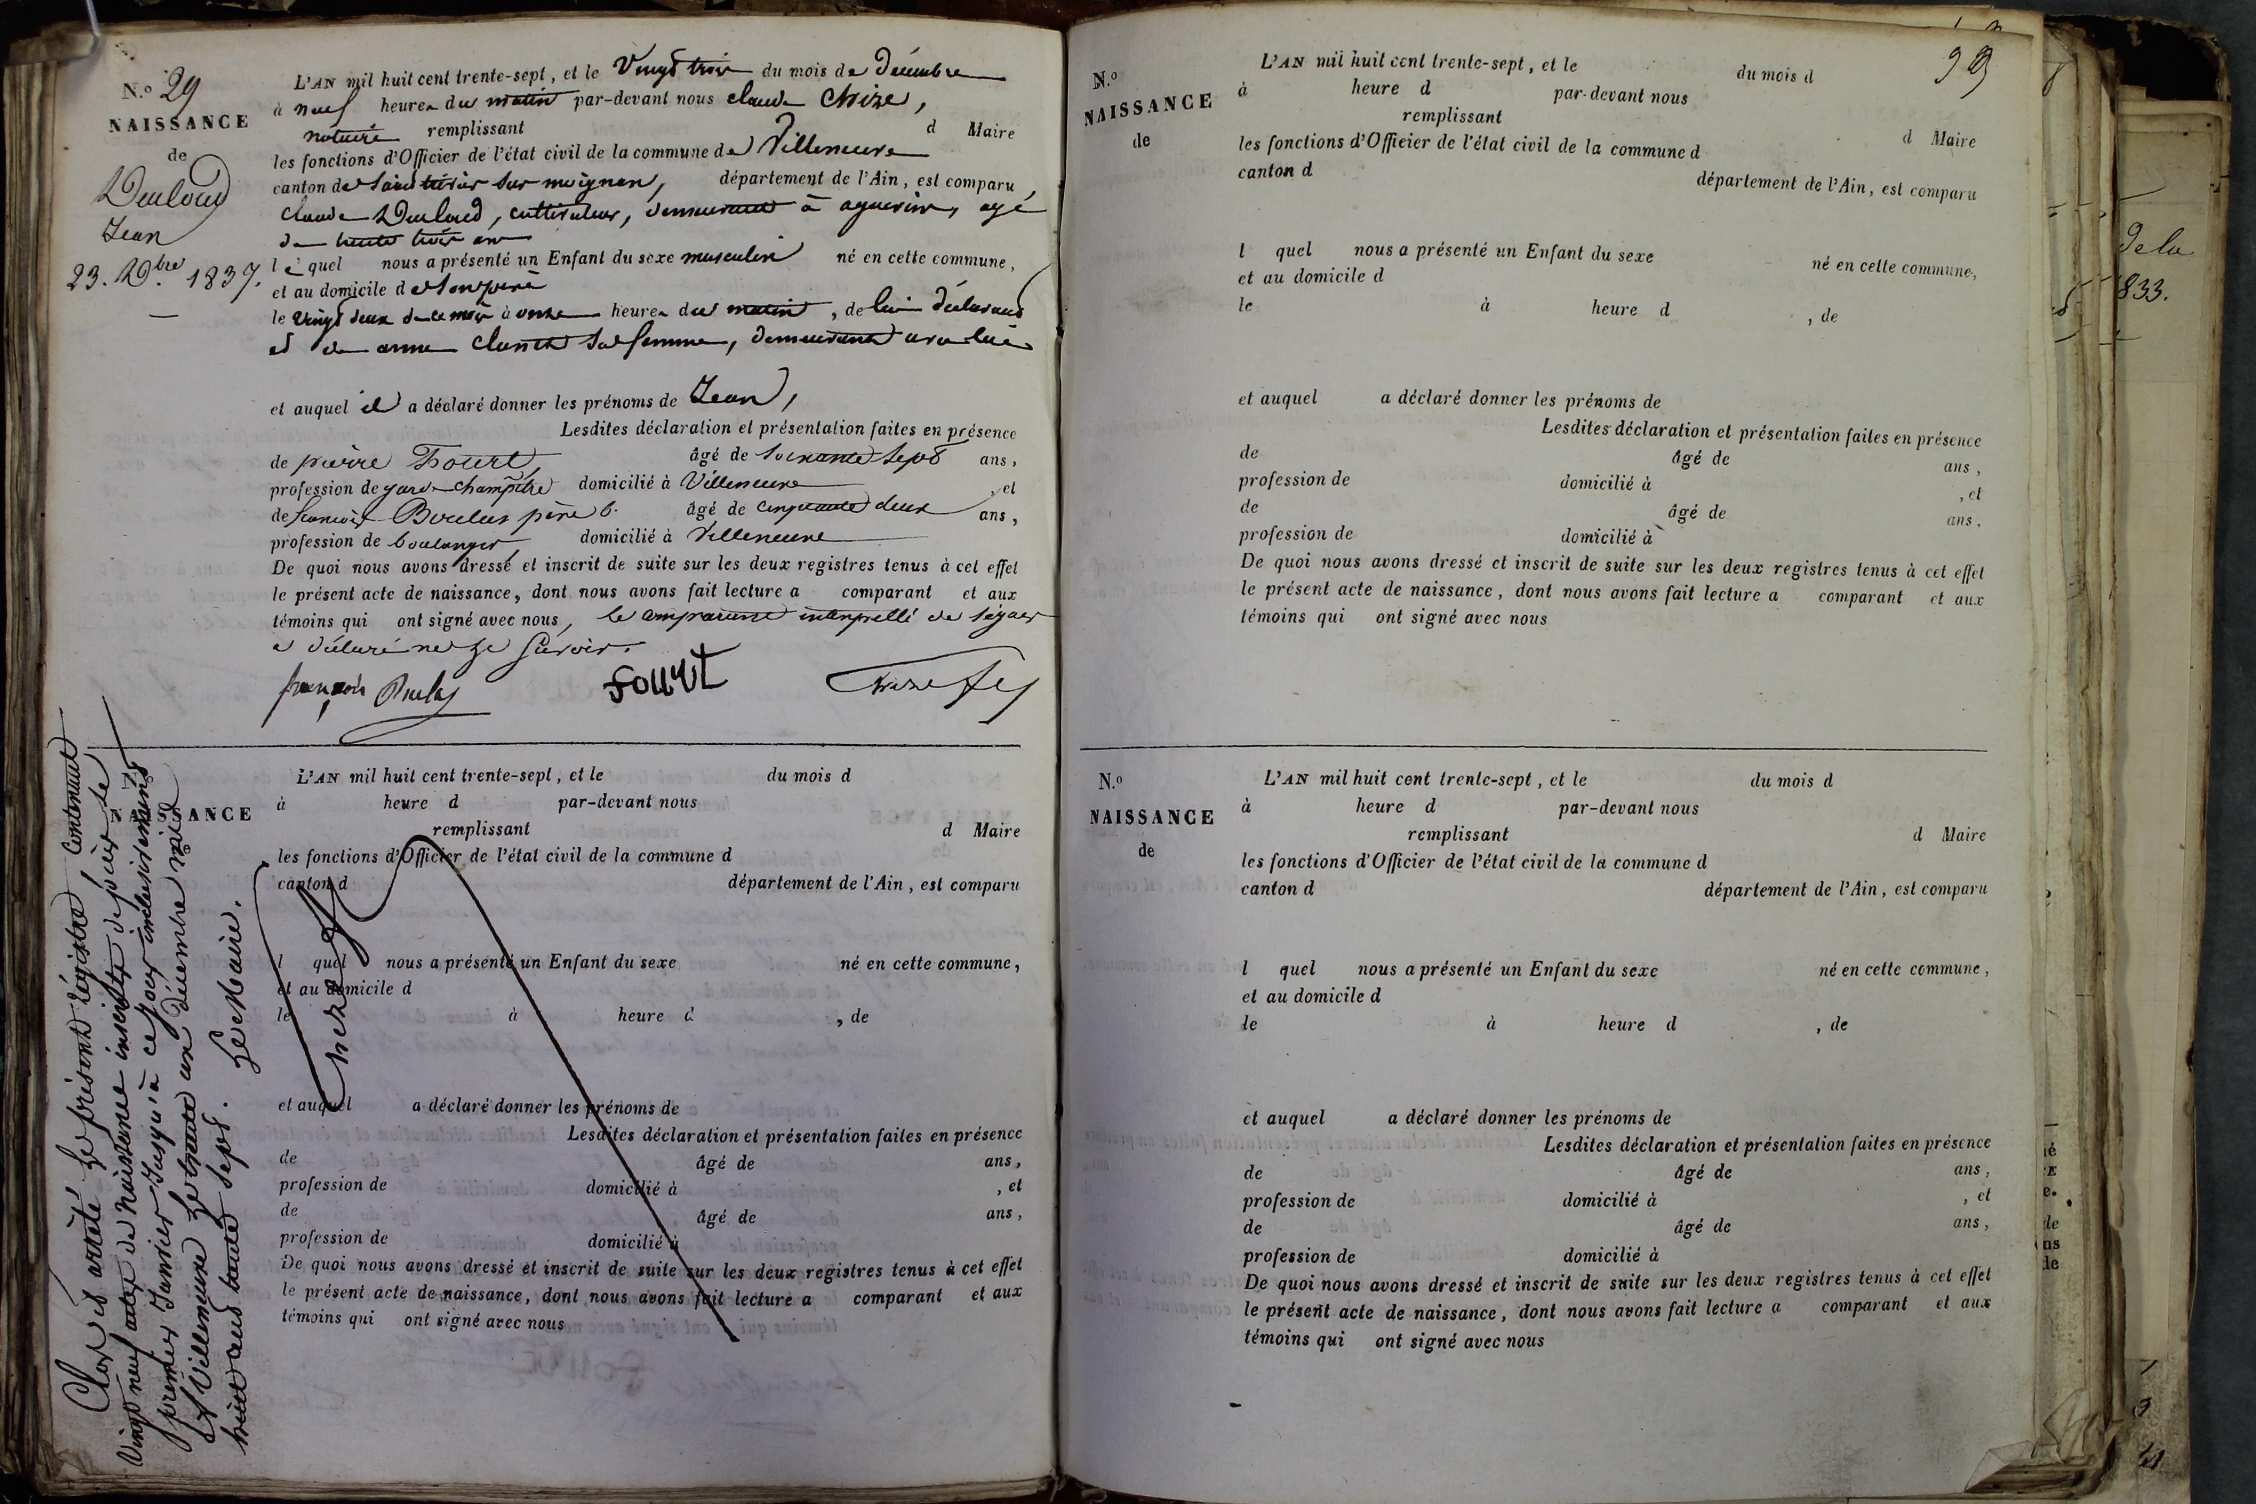 N.o 29
NAISSANCE
de
Ducloud
Jean
23. Xbre 1837.
L'AN mil huit cent trente-sept, et le vingt trois du mois de décembre
à neuf heures du matin par-devant nous claude Chize,
notaire remplissant d Maire
les fonctions d'Officier de l'état civil de la commune de Villeneuve
canton de Saint trivier sur moignan, département de l'Ain, est comparu,
claude Ducloud, cultivateur, demeurant à agnerin, agé
de trente trois ans
l e quel nous a présenté un Enfant du sexe masculin né en cette commune,
et au domicile de son père
le vingt deux de ce mois à onze heures du matin, de lui déclarant
et de anne sa femme, demeurant avec lui
et auquel il a déclaré donner les prénoms de Jean,
Lesdites déclaration et présentation faites en présence
de pierre Fourt, âgé de soixante sept ans,
profession de garde champêtre domicilié à Villeneuve, et
de françois père b. âgé de cinquante deux ans,
profession de boulanger, domicilié à Villeneuve
De quoi nous avons dressé et inscrit de suite sur les deux registres tenus à cet effet
le présent acte de naissance, dont nous avons fait lecture a comparant et aux
témoins qui ont signé avec nous, le comparant interpellé de signer
a déclaré ne le savoir.
françois fourt Chize
N.o
NAISSANCE
L'AN mil huit cent trente-sept, et le du mois d
à heure d par-devant nous
remplissant d Maire
les fonctions d'Officier de l'état civil de la commune d
canton d département de l'Ain, est comparu
l quel nous a présenté un Enfant du sexe né en cette commune,
et au domicile d
le à heure d , de
et auquel a déclaré donner les prénoms de
Lesdites déclaration et présentation faites en présence
de âgé de ans,
profession de domicilié à , et
de âgé de ans,
profession de domicilié à
De quoi nous avons dressé et inscrit de suite sur les deux registres tenus à cet effet
le présent acte de naissance, dont nous avons fait lecture a comparant et aux
témoins qui ont signé avec nous
Clos et arrêté le présent régistre contenant
vingt neuf actes de naissance inscrits depuis le
premier Janvier jusqu'à ce jour inclusivement
A Villeneuve le trente un décembre mil
huit cent trente sept. Le Maire.
Chize
99
N.o
NAISSANCE
de
L'AN mil huit cent trente-sept, et le du mois d
à heure d par-devant nous
remplissant d Maire
les fonctions d'Officier de l'état civil de la commune d
canton d département de l'Ain, est comparu
l quel nous a présenté un Enfant du sexe né en cette commune,
et au domicile d
le à heure d , de
et auquel a déclaré donner les prénoms de
Lesdites déclaration et présentation faites en présence
de âgé de ans,
profession de domicilié à , et
de âgé de ans,
profession de domicilié à
De quoi nous avons dressé et inscrit de suite sur les deux registres tenus à cet effet
le présent acte de naissance, dont nous avons fait lecture a comparant et aux
témoins qui ont signé avec nous
N.o
NAISSANCE
de
L'AN mil huit cent trente-sept, et le du mois d
à heure d par-devant nous
remplissant d Maire
les fonctions d'Officier de l'état civil de la commune d
canton d département de l'Ain, est comparu
l quel nous a présenté un Enfant du sexe né en cette commune,
et au domicile d
le à heure d , de
et auquel a déclaré donner les prénoms de
Lesdites déclaration et présentation faites en présence
de âgé de ans,
profession de domicilié à , et
de âgé de ans,
profession de domicilié à
De quoi nous avons dressé et inscrit de suite sur les deux registres tenus à cet effet
le présent acte de naissance, dont nous avons fait lecture a comparant et aux
témoins qui ont signé avec nous
de la
833.